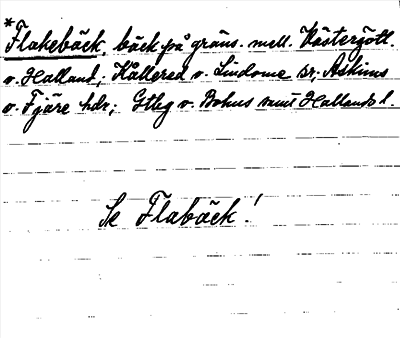 *Flakebäck, bäck på gräns. mell. Västergötl.
o. Halland; Kållered o. Lindome sr; Askims
o. Fjäre hdr; Gtbg o. Bohus samt Hallands l.
Se Flabäck!